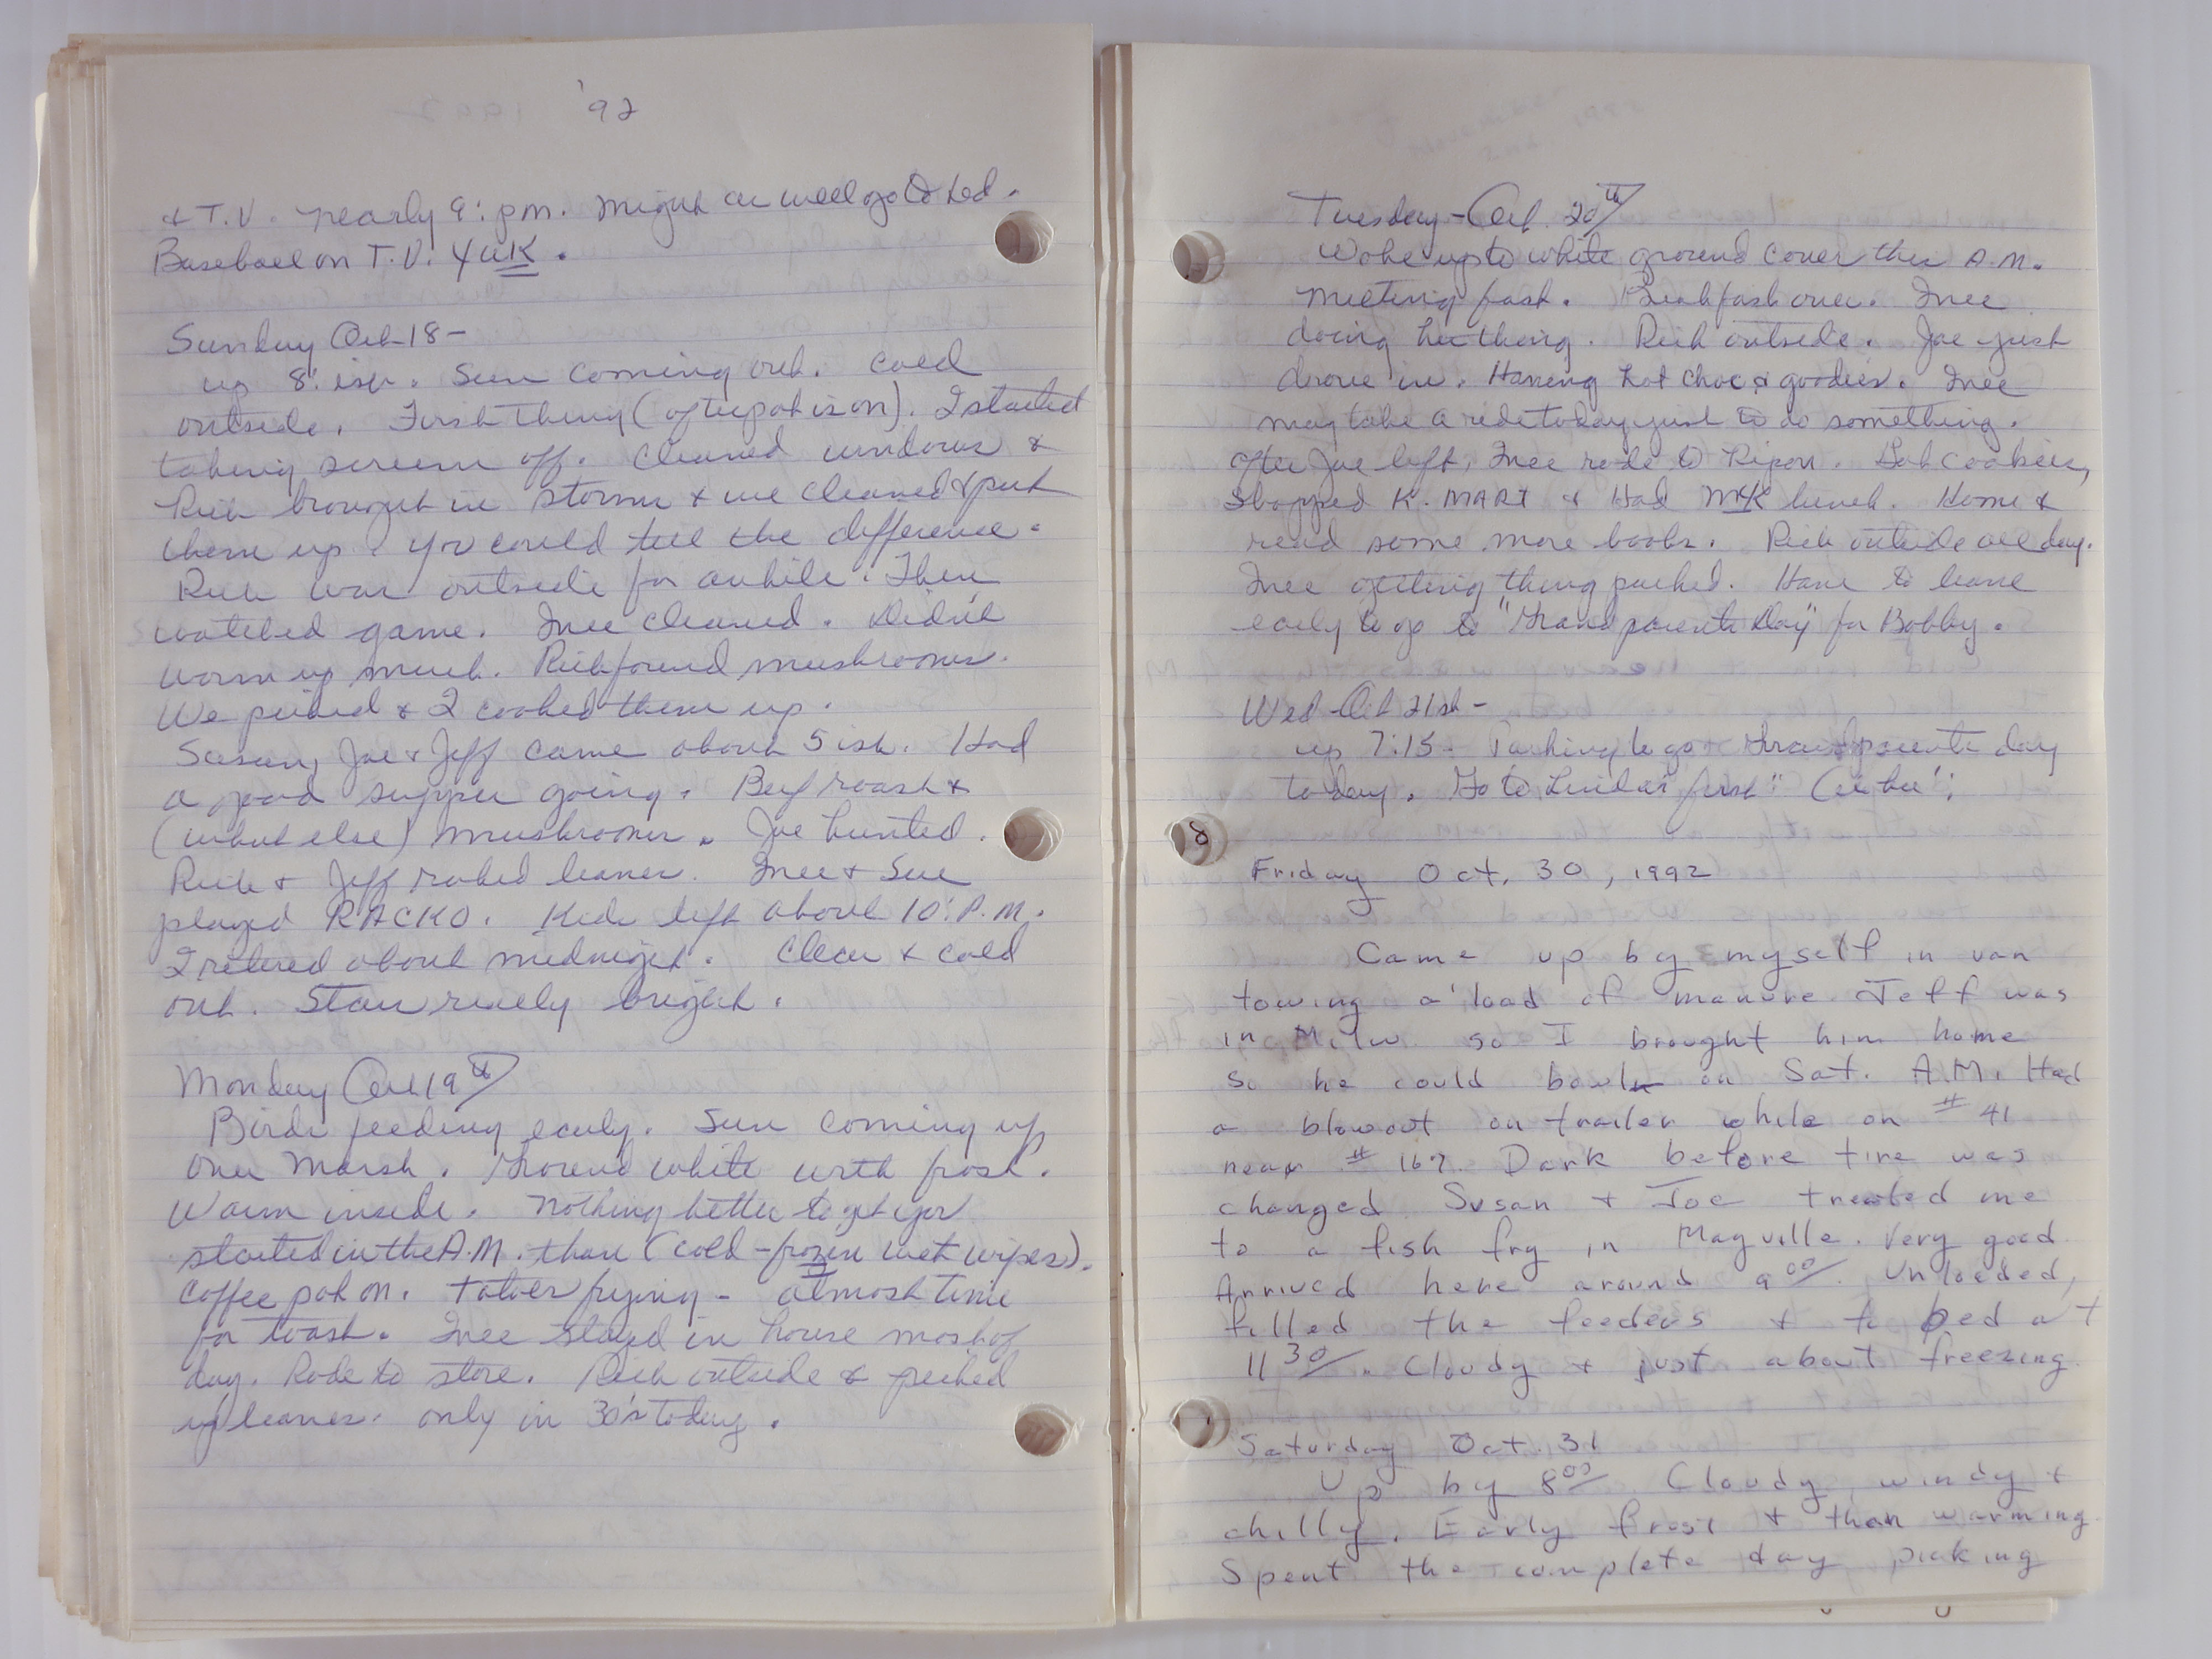 '92
& T.V. nearly 9: pm. Might as well go to bed.
Baseball on T.V. YUK.
Sunday Oct 18 -
up 8: ish. Sun coming out. Cold
outside. First thing (after pot is on). I started
taking screens off. Cleaned windows &
Rich brought in storms & we cleaned & put
them up. You could tell the difference.
Rich was outside for awhile. Then
watched game. Inee cleaned. Didn't
warm up much. Rich found mushrooms.
We picked & I cooked them up.
Susan, Joe & Jeff came about 5 ish. Had
a good supper going. Beef roast &
(what else) mushrooms. Joe hunted.
Rich & Jeff raked leaves. Inee & Sue
played RACKO. Kids left about 10: P.M.
I retired about midnight. Clear & cold
out. Stars really bright.
Monday Oct 19th
Birds feeding early. Sun coming up
over marsh. Ground white with frost.
Warm inside. Nothing better to get you
started in the A.M. than (cold - frozen wet wipes).
Coffee pot on. Tatoes frying - almost time
for toast. Inee stayed in house most of
day. Rode to store. Rich outside & picked
up leaves. Only in 30's today.
Tuesday - Oct. 20th
Woke up to white ground cover this A.M.
Melting fast. Breakfast over. Inee
doing her thing. Rich outside. Joe just
drove in. Having hot choc & goodies. Inee
may take a ride today just to do something.
After Joe left, Inee rode to Ripon. Got cookies,
stopped K. MART & Had lunch. Home &
read some more books. Rich outside all day.
Inee getting things packed. Have to leave
early to go to "Grand parents Day" for Bobby.
Wed - Oct 21st -
up 7:15. Packing to go. Grandparents day
today. Go to Linda's first
Friday Oct. 30, 1992
Came up by myself in van
towing a load of manure. Jeff was
in Milw. so I brought him home
so he could bowl on Sat. A.M. Had
a blowout on trailer while on # 41
near # 167. Dark before tire was
changed. Susan & Joe treated me
to a fish fry in Mayville. Very good.
Arrived here around 9 00. Unloaded,
filled the feeders & to bed at
11 30. Cloudy & just about freezing.
Saturday Oct. 31
Up by 8 00. Cloudy, windy &
chilly. Early frost & than warming.
Spent the complete day picking